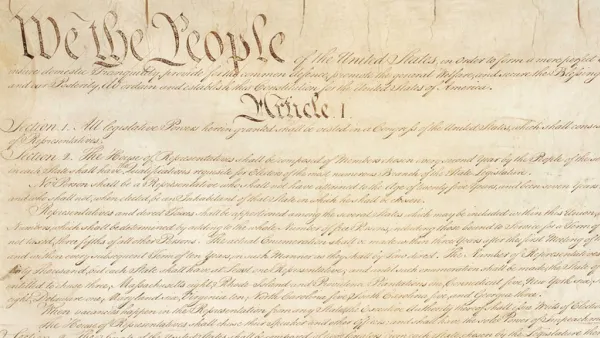 We the People of the United States, in Order to form a more perfect
insure domestic Tranquility, provide for the common defence, promote the general Welfare, and secure the Blessings
and our Posterity, do ordain and establish this Constitution for the United States of America.
Article I.
Section 1. All legislative Powers herein granted shall be vested in a Congress of the United States, which shall consist
of Representatives.
Section 2. The House of Representatives shall be composed of Members chosen every second Year by the People of the
in each State shall have Qualifications requisite for Electors of the most numerous Branch of the State Legislature.
No Person shall be a Representative who shall not have attained to the Age of twenty five Years, and been seven Years
and who shall not, when elected, be an Inhabitant of that State in which he shall be chosen.
Representatives and direct Taxes shall be apportioned among the several States which may be included within this Union,
Numbers, which shall be determined by adding to the whole Number of free Persons, including those bound to Service for a Term of
not taxed, three fifths of all other Persons. The actual Enumeration shall be made within three Years after the first Meeting of
and within every subsequent Term of ten Years, in such Manner as they shall by Law direct. The Number of Representatives
thirty Thousand, but each State shall have at Least one Representative; and until such enumeration shall be made, the State of
entitled to chuse three, Massachusetts eight, Rhode Island and Providence Plantations one, Connecticut five, New York six,
eight, Delaware one, Maryland six, Virginia ten, North Carolina five, South Carolina five, and Georgia three.
When vacancies happen in the Representation from any State, the Executive Authority thereof shall issue Writs of Election
The House of Representatives shall chuse their Speaker and other Officers; and shall have the sole Power of Impeachment